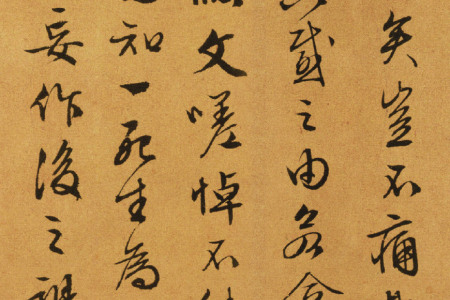 矣豈不痛
感之由若合
文嗟悼不
知一死生為
妄作後之